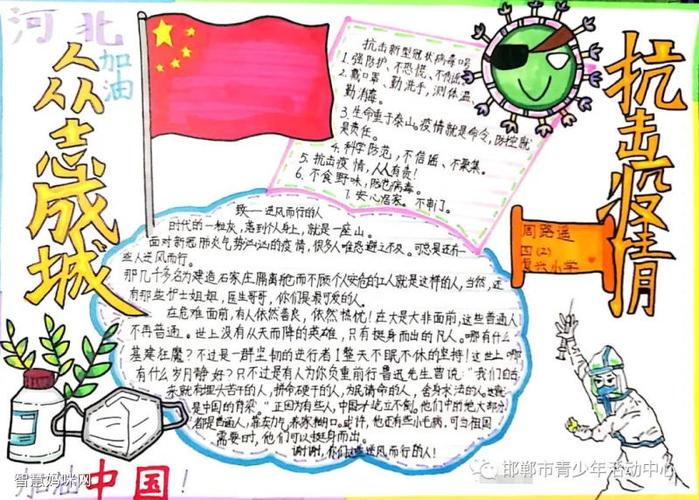 河北
加油
众志成城
抗击新型冠状病毒吗
1.强防护、不恐慌、不信谣
2.戴口罩、勤洗手，测体温、
勤消毒。
3.生命重于泰山。疫情就是命令，防控就
是责任。
4.科学防范，不信谣、不聚集。
5.抗击疫情，人人有责！
6.不食野味，防范病毒。
7.安心居家。不串门。
抗击疫情
周路遥
四(2)
复兴小学
致——逆风而行的人
时代的一粒灰，落到个人身上，就是一座山。
面对新冠肺炎气势汹汹的疫情，很多人唯恐避之不及。可总是还有一
些人逆风而行。
那几千多名为建造石家庄隔离 而不顾个人安危的工人就是这样的人，当然，还
有那些护士姐姐，医生哥哥，你们是最可爱的人。
在危难面前，有人依然善良，依然担忧！在大是大非面前，这些普通人
不再普通。世上没有从天而降的英雄，只有挺身而出的凡人。哪有什么
基建狂魔？不过是一群坚韧的逆行者！整天不眠不休的坚持！这世上哪
有什么岁月静好？只不过是有人为你负重前行鲁迅先生曾说：“我们自古
来就有埋头苦干的人，拼命硬干的人，为民请命的人，舍身求法的人。这就
是中国的脊梁。”正因为有些人，中国才屹立不倒。他们中的绝大部分
都很普通人，靠卖力气养家糊口。或许，他还有些小毛病，可当祖国
需要时，他们可以挺身而出。
谢谢，你们这些逆风而行的人！
加油中国！
智慧妈咪网
邯郸市青少年活动中心